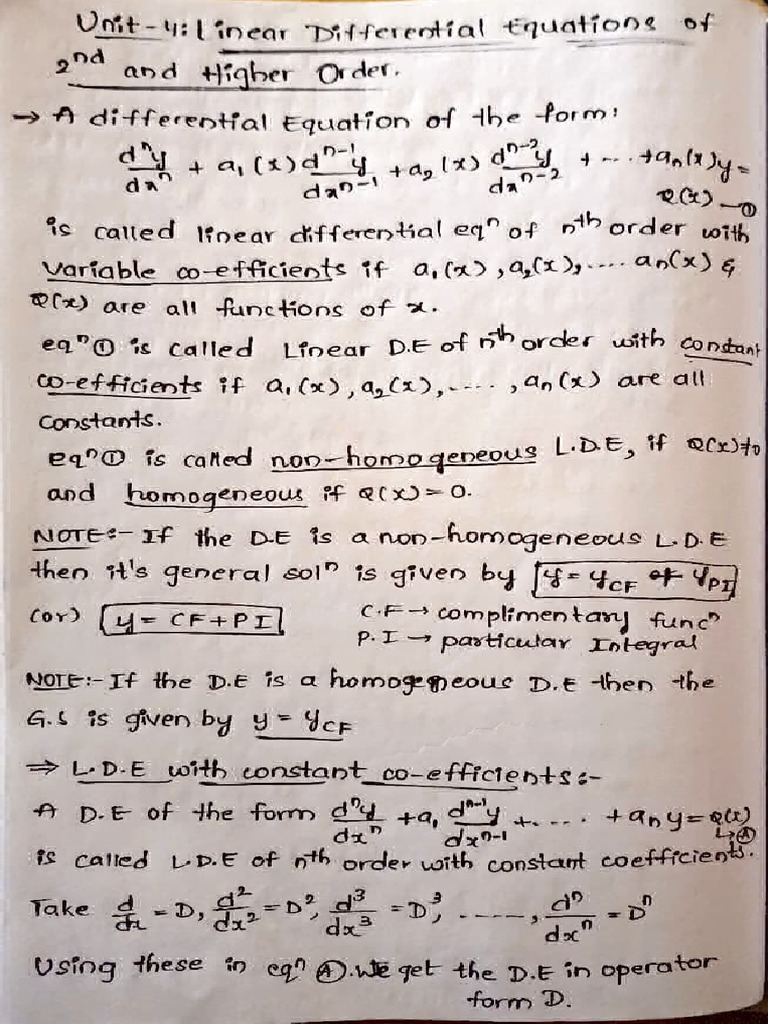 Unit-4: Linear Differential Equations of
2nd and Higher Order.
→ A differential Equation of the form:
dⁿy/dxⁿ + a₁(x) dⁿ⁻¹y/dxⁿ⁻¹ + a₂(x) dⁿ⁻²y/dxⁿ⁻² + ... + aₙ(x)y =
Q(x) —①
is called linear differential eqⁿ of nth order with
variable co-efficients if a₁(x), a₂(x), .... aₙ(x) &
Q(x) are all functions of x.
eqⁿ① is called Linear D.E of nth order with constant
co-efficients if a₁(x), a₂(x), ....., aₙ(x) are all
constants.
eqⁿ① is called non-homogeneous L.D.E, if Q(x)≠0
and homogeneous if Q(x)=0.
NOTE:- If the D.E is a non-homogeneous L.D.E
then it's general solⁿ is given by y = yCF + yPI
(or) y = CF+PI C.F → complimentary funcⁿ
P.I → particular Integral
NOTE:- If the D.E is a homogeneous D.E then the
G.S is given by y = yCF
⇒ L.D.E with constant co-efficients:-
A D.E of the form dⁿy/dxⁿ + a₁ dⁿ⁻¹y/dxⁿ⁻¹ + ..... + aₙy = Q(x)
↳Ⓐ
is called L.D.E of nth order with constant coefficients.
Take d/dx = D, d²/dx² = D², d³/dx³ = D³, ....., dⁿ/dxⁿ = Dⁿ
Using these in eqⁿ Ⓐ. We get the D.E in operator
form D.